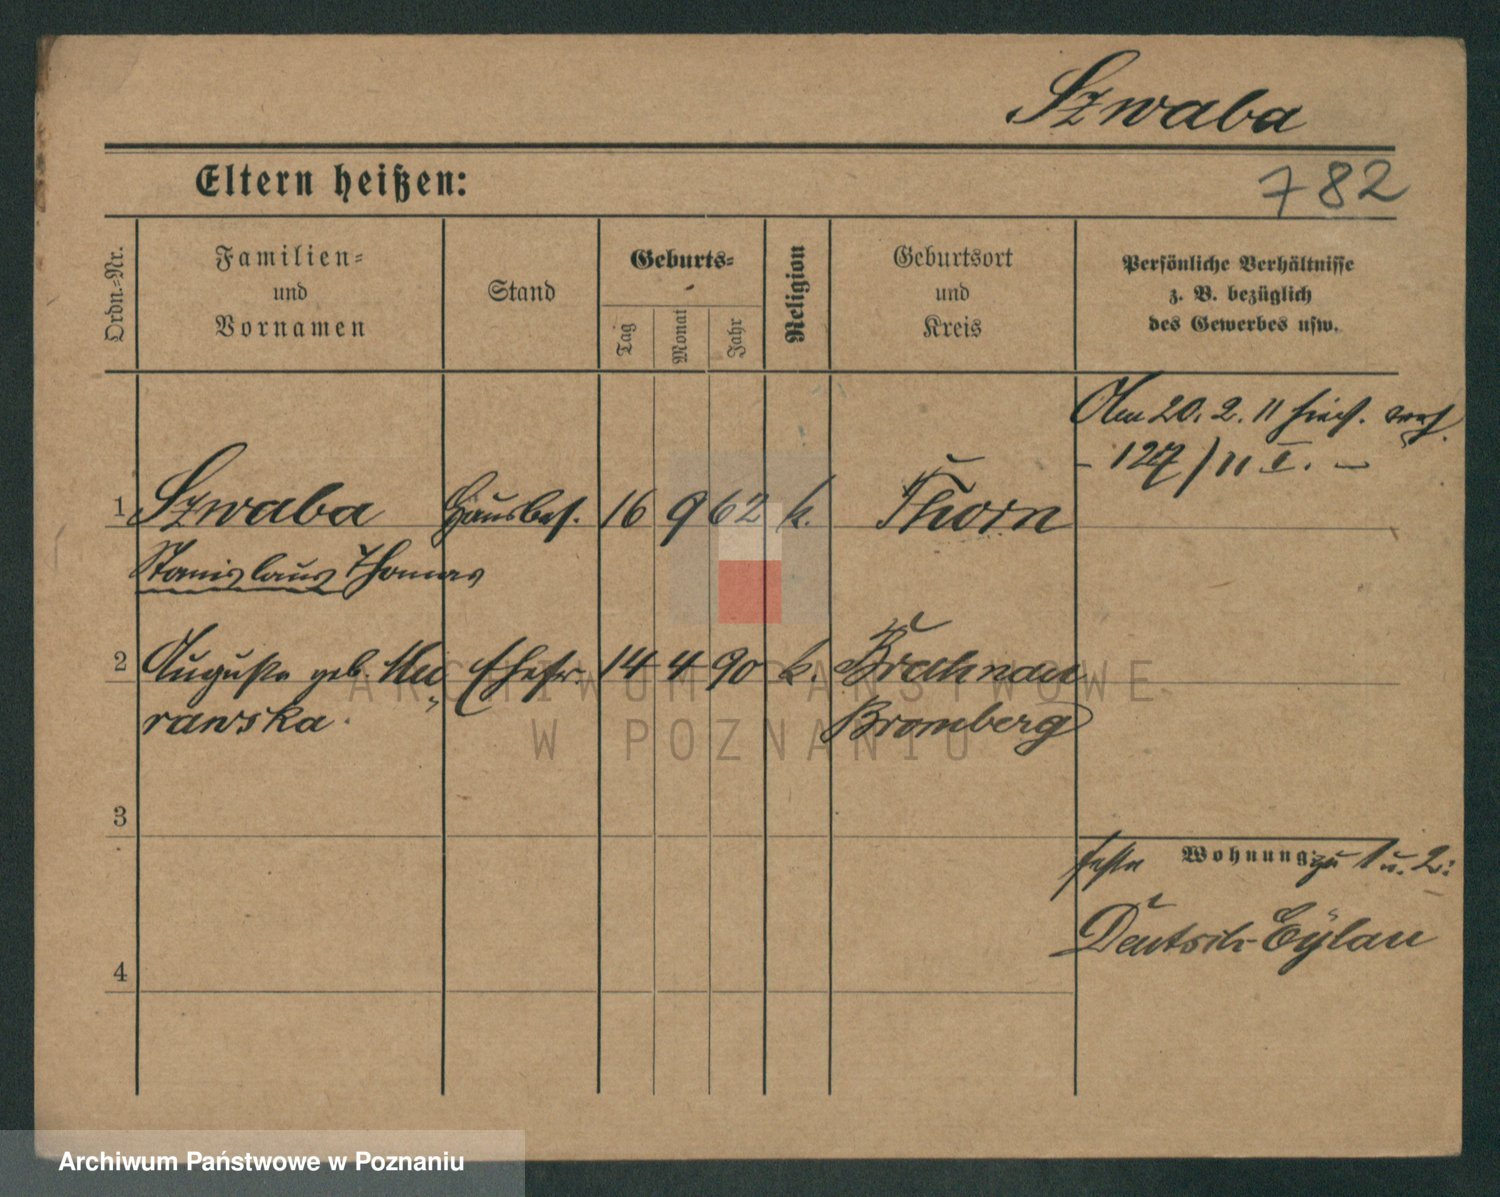 Szwaba
Eltern heißen:
782
Ordn.-Nr.
Familien-
und
Vornamen
Stand
Geburts-
Tag
Monat
Jahr
Religion
Geburtsort
und
Kreis
Persönliche Verhältnisse
z. B. bezüglich
des Gewerbes usw.
Am 20. 2. 11
- 127/11 I. -
1 Szwaba Hausbes. 16 9 62 k. Thorn
Stanislaus Thomas
2 Auguste geb. Mu- Ehefr. 14 4 90 k. Brahnau
rawska Bromberg
3
feste Wohnung zu 1 u. 2:
Deutsch-Eylau
4
ARCHIWUM PAŃSTWOWE
W POZNANIU
Archiwum Państwowe w Poznaniu